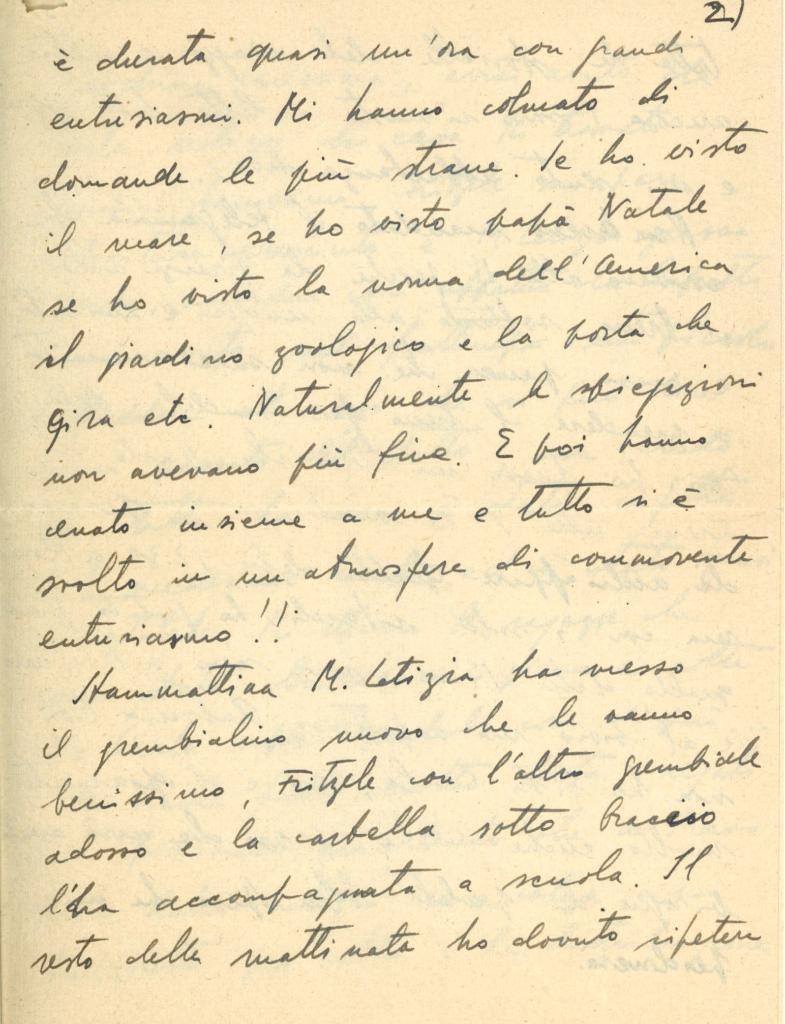 2)
è durata quasi un'ora con grandi
entusiasmi. Mi hanno colmato di
domande le più strane. Se ho visto
il mare, se ho visto papà Natale
se ho visto la nonna dell'America
il giardino zoologico e la porta che
gira etc. Naturalmente le spiegazioni
non avevano più fine. E poi hanno
cenato insieme a me e tutto si è
svolto in un atmosfera di commovente
entusiasmo!!
Stammattina M. Letizia ha messo
il grembialino nuovo che le vanno
benissimo, Fritzele con l'altro grembiale
adosso e la cartella sotto braccio
l'ha accompagnata a scuola. Il
resto della mattinata ho dovuto ripetere